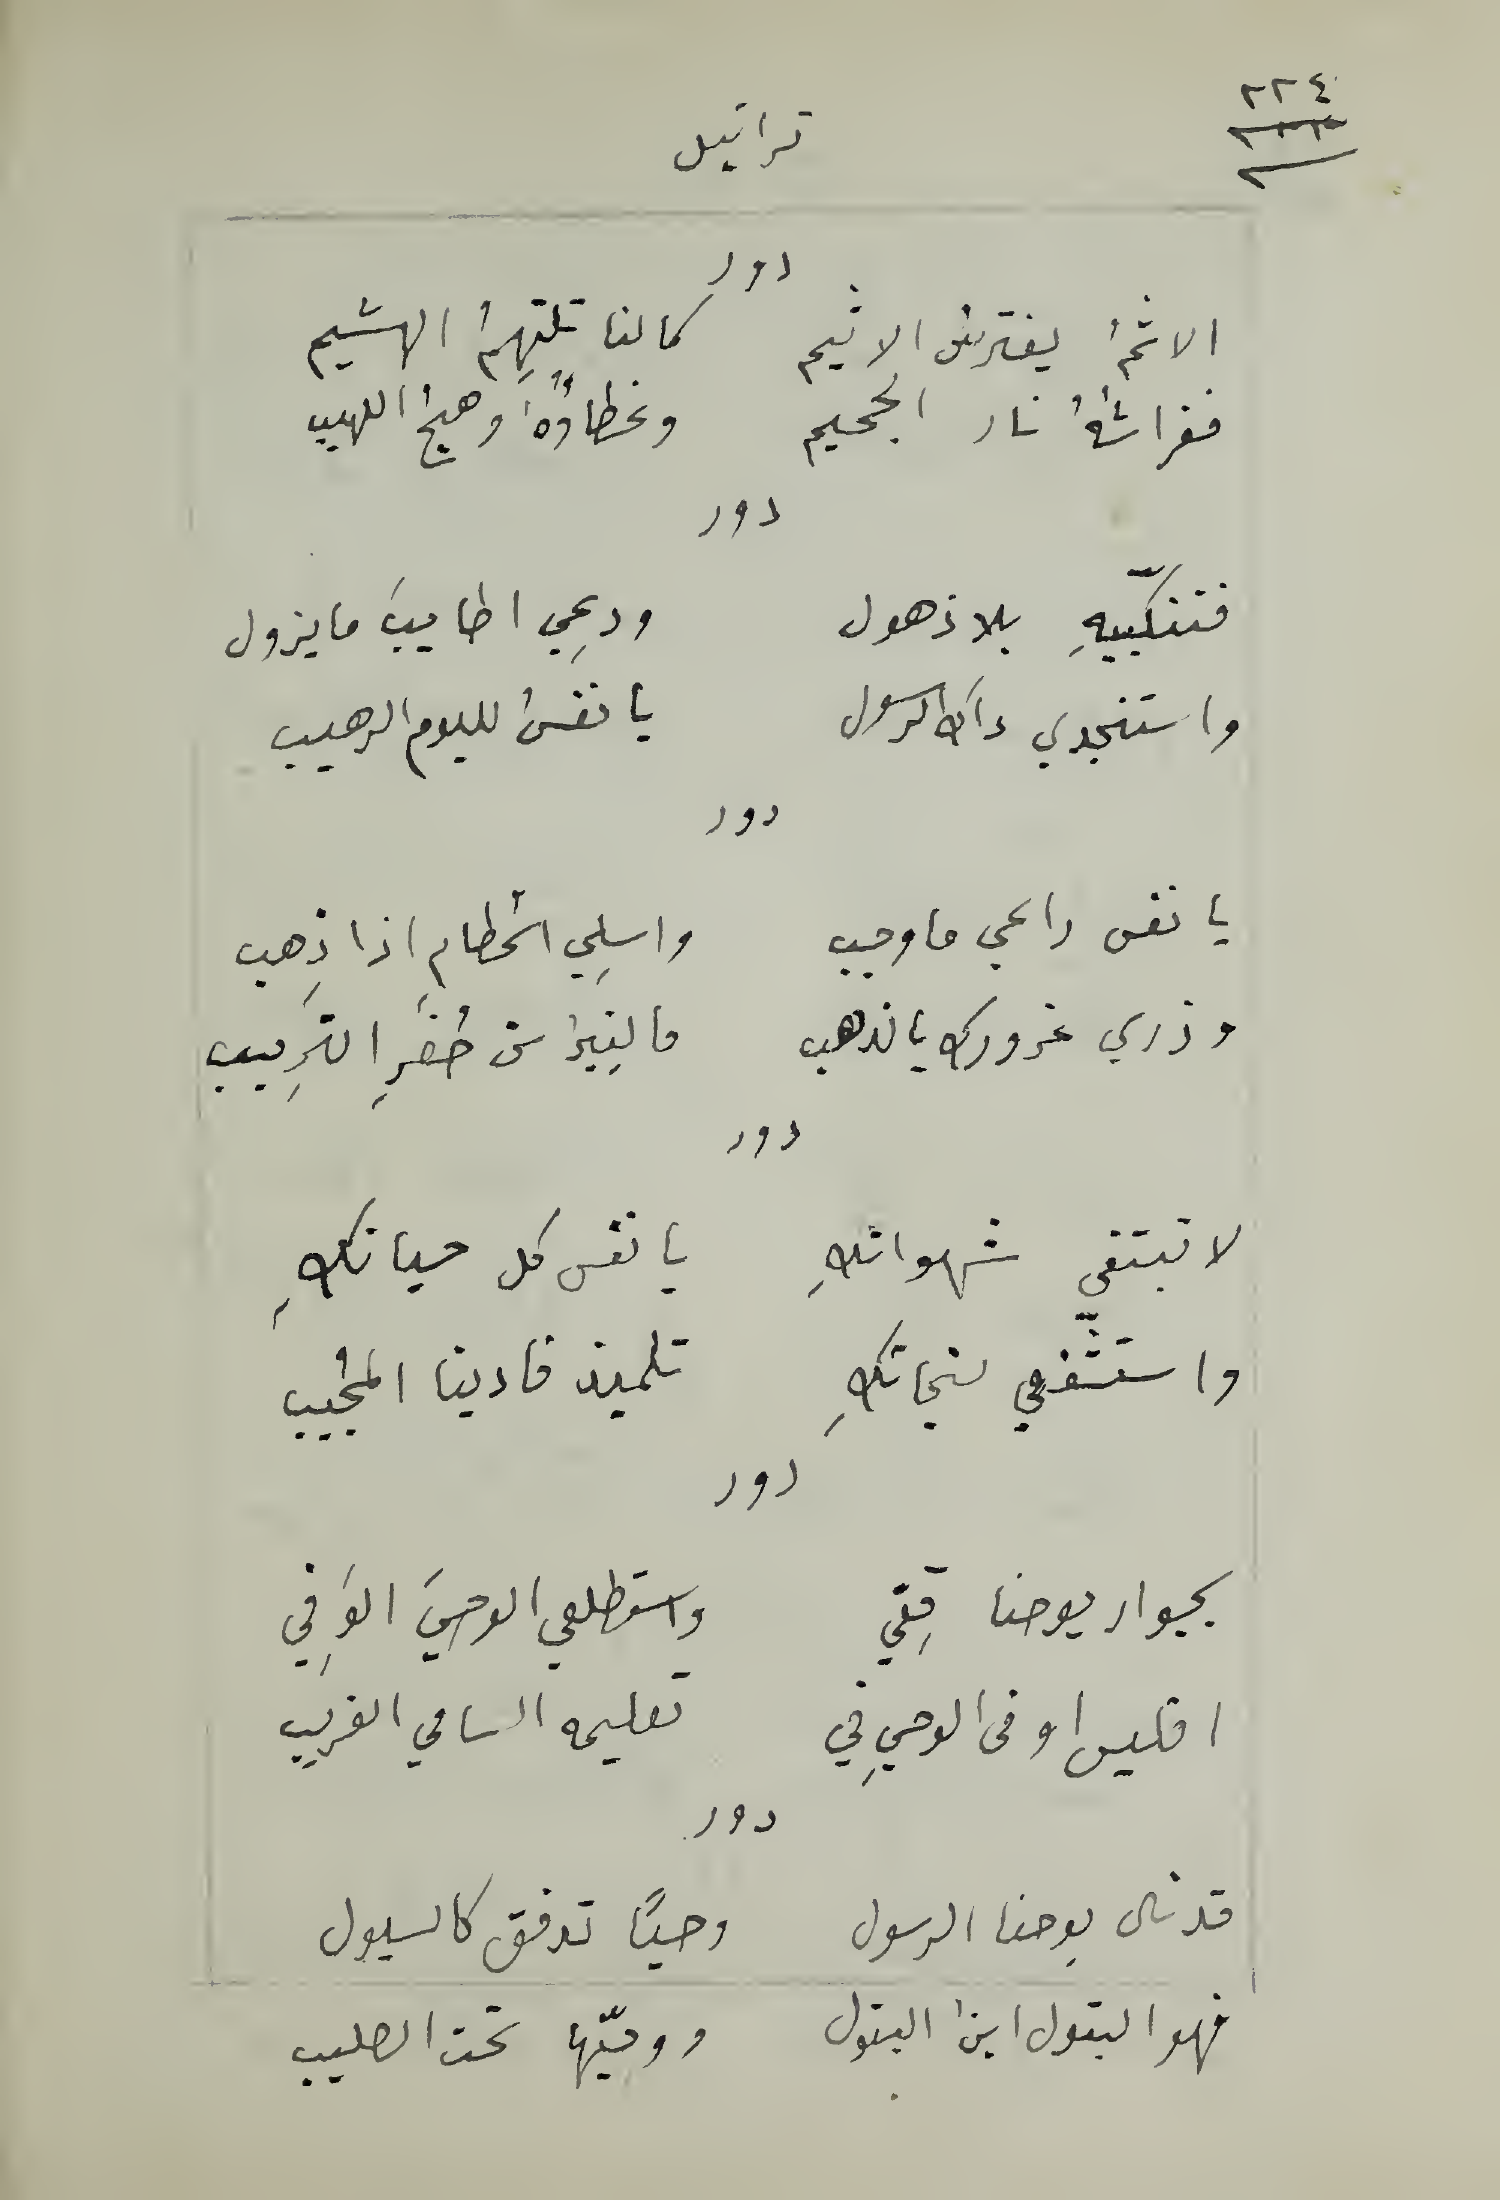 ٢٢٤
تراتيل
دور
الاثمُ يفترش الاثيم كالنا تلتهمُ الهشيم
ففراشهُ نار الجحيم وغطاؤُهُ وهيجُ اللهيب
دور
فتنكّبيهِ بلا ذهول ودعِي اطايبَ ما يزول
واستنجدي ذاك الرسول يا نفسُ لليوم الرهيب
دور
يا نفس راعي ما وجب واسلِي الحطام اذا ذهب
وذري غرورك بالذهب
دور
لا تبتغي شهواتكِ يا نفس كل حياتكِ
واستشّفعي لنجاتكِ تلميذ فادينا المجُيب
دور
بجوار يوحنا قِفي واستطلعي الوحيَ الوَفِي
افليس اوفى الوحيِ في تعليمه السامي الغريب
دور
قد نال يوحنا الرسول وحيًا تدفق كالسيول
فهو البتول ابنُ البتول ووصيّها تحت الصليب